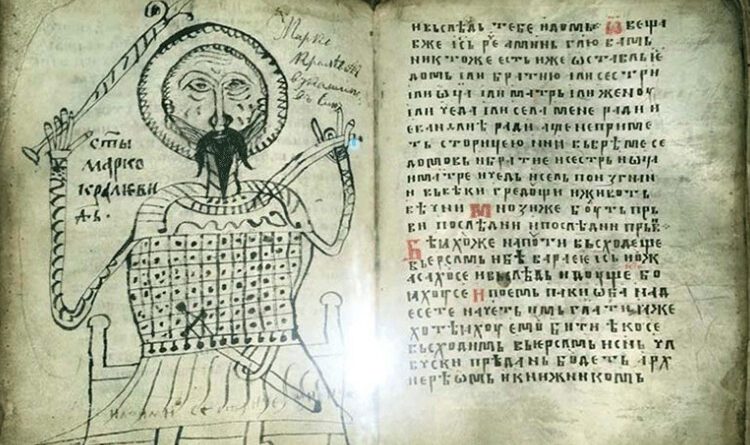 Марко
СТЫ
МАРКО
КРАЛЮЕВИ
и вьслѣдь тебе идомь Ѿвеща
вже ісь ре аминь глю вамь
никтоже есть иже оставль
домь или братию или сестри
или ѡца или матрь или женоу
или чеда или села мене ради и
еванлие ради аще не приме
ть сторицею нни вь врѣме се
домовь и братие и сестрь и ѡца
и матре и чедь и сель по изгнани
и вь вѣки гредоущи и животь
вѣчни Мнози же боуть прь
ви последни и последни прьв
Бѣхоу же на поути вьсходеще
вь ерсмь и бѣ варѣе іс и оуж
асахосе и вьслѣдь идоуще бо
ахоусе И поемь паки ѡба над
есете начеть имь глати иже
хотѣхоу емоу бити ѣко се
вьсходимь вь ерсмь и снь чл
прѣдань боудеть арх
иерѣѡмь и книжникомь